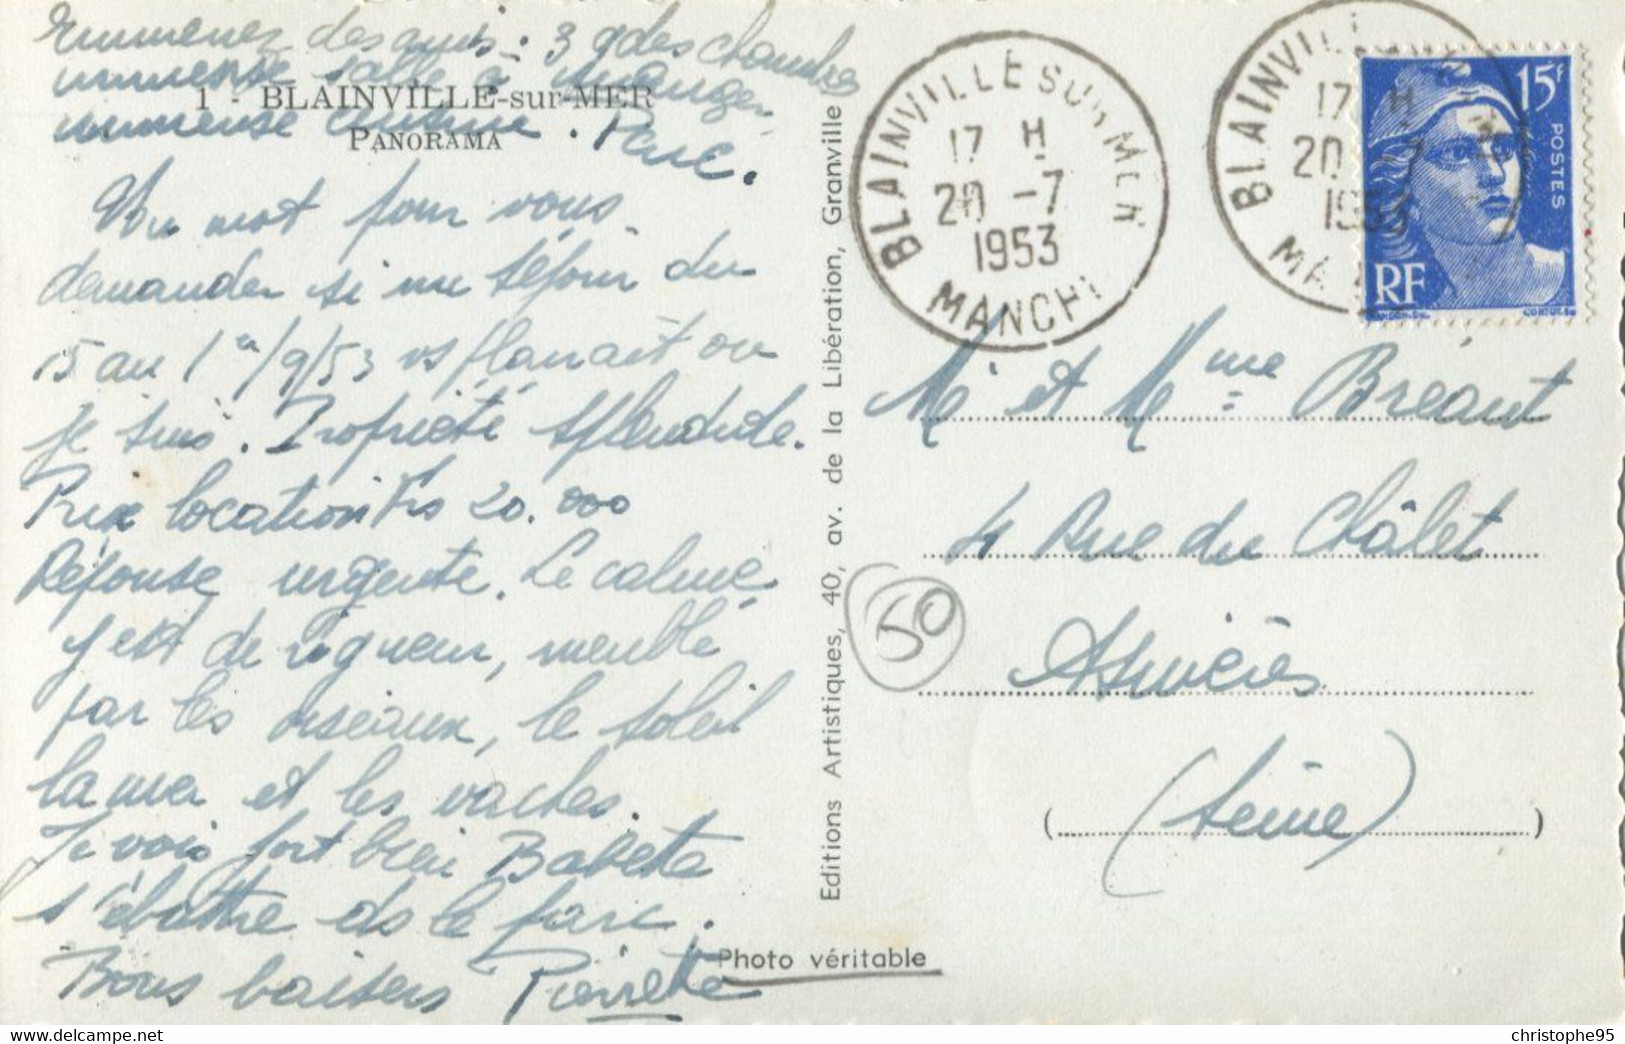 Emmenez des amis : 3 gdes chambres
immense salle à manger
1 - BLAINVILLE-sur-MER
immense cuisine. Parc.
PANORAMA
Un mot pour vous
demander si un séjour du
15 au 1er/9/53 vs plairait où
je suis. Propriété splendide.
Prix location Frs 20.000
Réponse urgente. Le calme
y est de rigueur, meublé
par les oiseaux, le soleil
la mer et les vaches.
Je vois fort bien Babette
s'ébattre ds le parc.
Bons baisers Pierrette
Editions Artistiques, 40, av. de la Libération, Granville
Photo véritable
BLAINVILLE SUR MER
17 H
20 -7
1953
MANCHE
BLAINVILLE
17 H
20 -7
1953
MA
15F
POSTES
RF
GANDON DEL.
CORTOT SC
Mr et Mme Bréant
4 Rue du Châlet
50
Asnières
(Seine)
christophe95